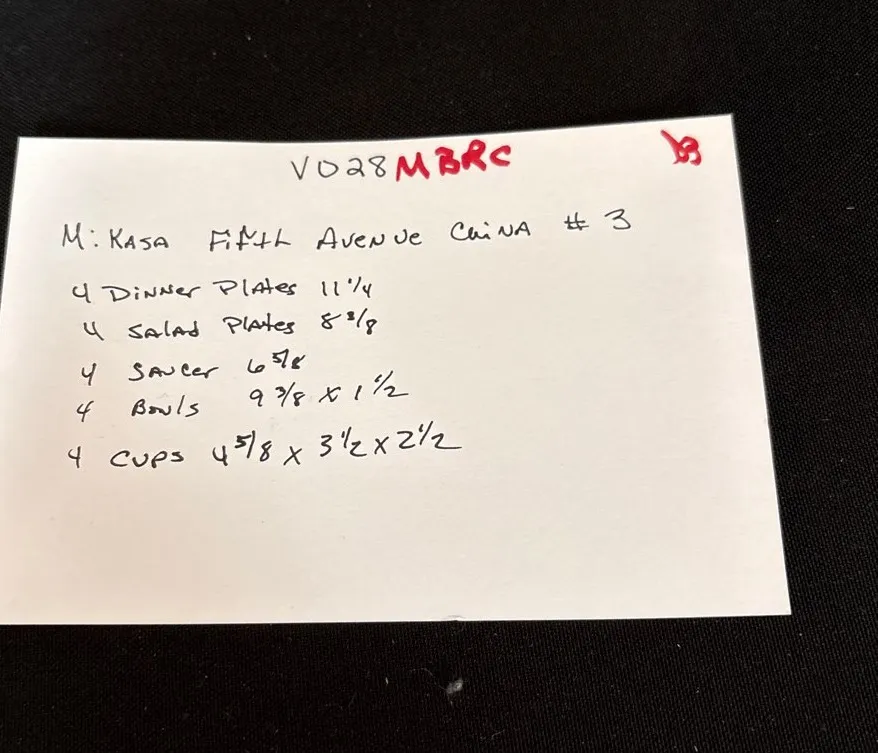 V028MBRC
MiKASA FiFth Avenue China # 3
4 Dinner Plates 11 1/4
4 Salad Plates 8 3/8
4 Saucer 6 5/8
4 Bowls 9 3/8 x 1 1/2
4 Cups 4 5/8 x 3 1/2 x 2 1/2